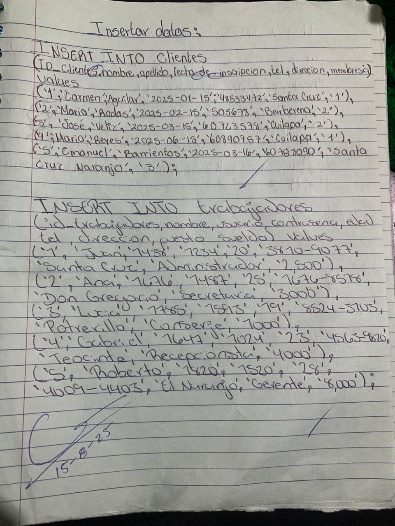 Insertar datos:
INSERT INTO Clientes
(ID_cliente, nombre, apellido, fecha de inscripcion, tel, direccion, membresia)
Values
('1', 'Carmen', 'Aguilar', '2025-01-15', '48533472', 'Santa Cruz', '1'),
('2', 'Maria', 'Rodas', '2025-02-15', '505678', 'Barberena', '2'),
'José', 'Velez', '2025-03-15', 'Cuilapa', '2'),
'Mario', 'Reyes', '2025-06-15', '60890757', 'Cuilapa', '1'),
('5', 'Emanuel', 'Barrientos', '2025-03-16', 'Santa
Cruz Naranjo', '3');
INSERT INTO trabajadores
(id_trabajadores, nombre, usuario, contrasena, edad
tel, direccion, puesto, sueldo) Values
('1', 'Juan', '7458', '1234', '20',
'Santa Cruz', 'Administrador', '2,500'),
('2', 'Ana', '1616', '1487', '25', '1676-8578',
'Don Gregorio', 'Secretaria', '3000'),
('3', 'Lucia', '7785', '19', '8524-3703',
'Potrerillo', 'Conserje', '1000'),
('4', 'Gabriel', '7647', '1024', '23', '4563-9820',
'Teocinte', 'Recepcionista', '4000'),
('5', 'Roberto', '1820', '1520', '28',
'4009-4403', 'El Naranjo', 'Gerente', '8,000');
15-8-25